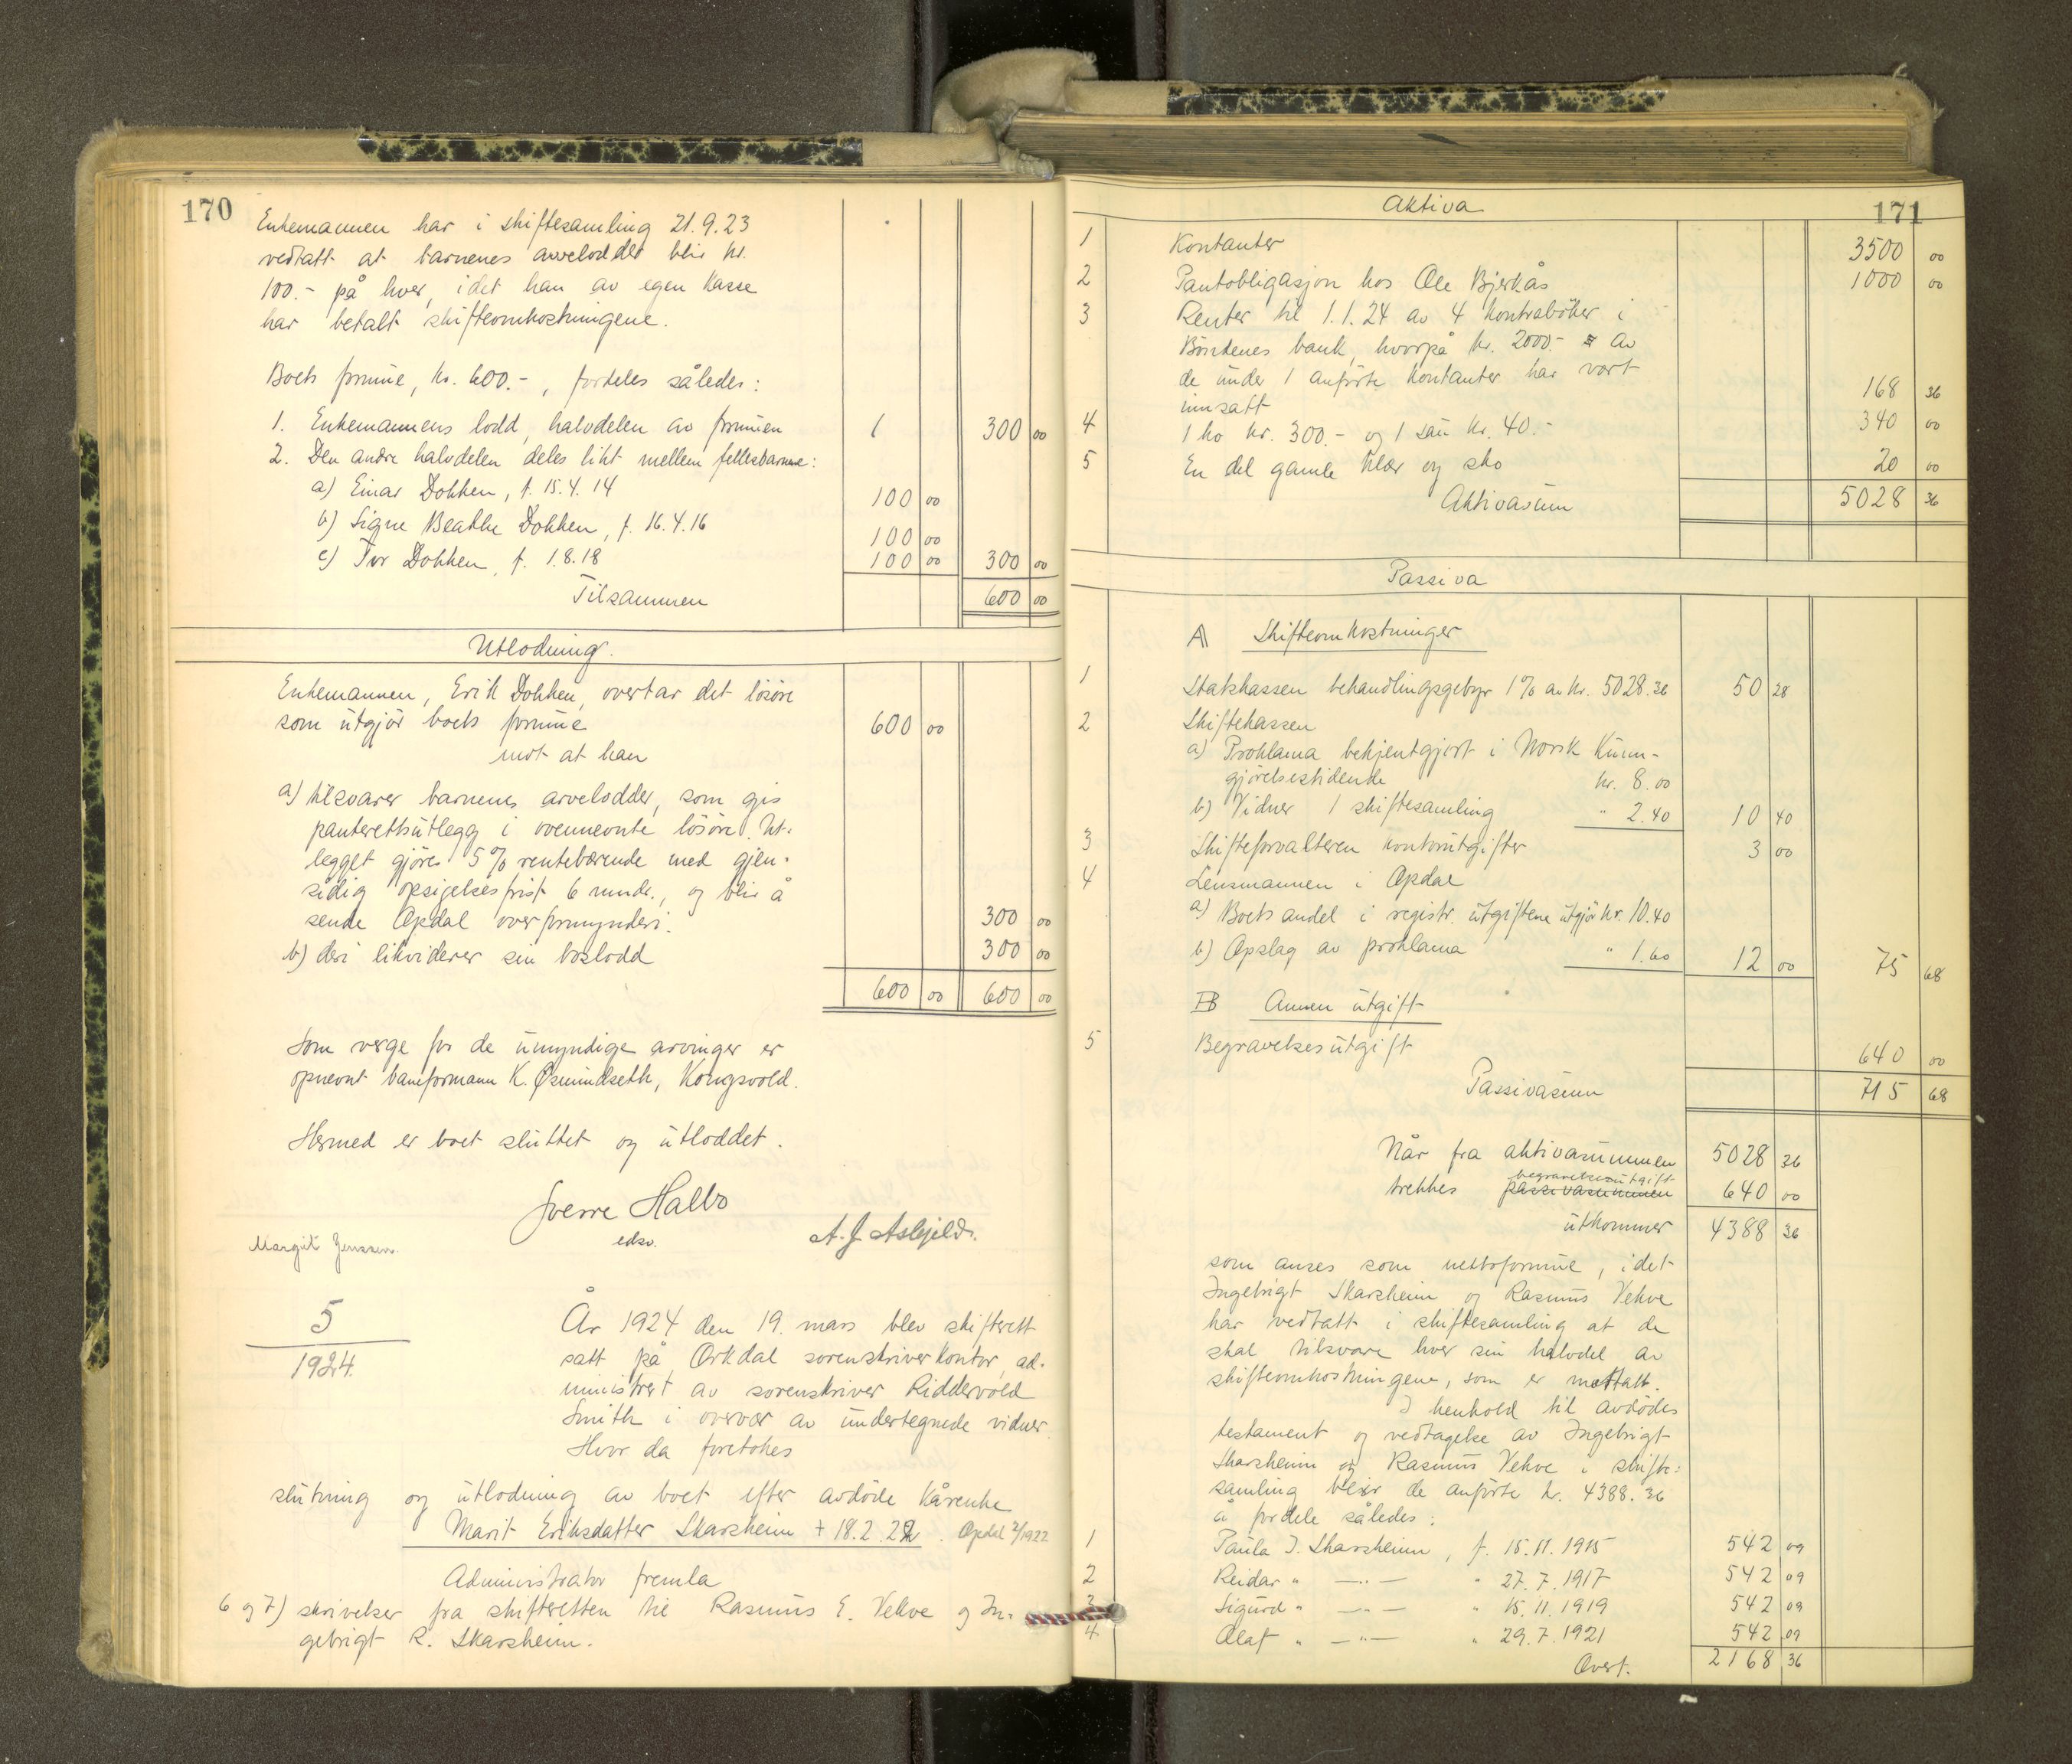 170
Enkemannen har i skiftesamling 21.9.23
vedtatt at barnenes arvelodder blir kr.
100.- på hver, idet han av egen kasse
har betalt skifteomkostningene.
Boets formue, kr. 600.-, fordeles således:
1. Enkemannens lodd, halvdelen av formuen 300 00
2. Den andre halvdelen deles likt mellem fellesbarnene:
a) Einar Dokken, f. 15.4.14 100 00
b) Signe Beathe Dokken, f. 16.4.16 100 00
c) Tor Dokken, f. 1.8.18 100 00 300 00
Tilsammen 600 00
Utlodning.
Enkemannen, Erik Dokken, overtar det lösöre
som utgjör boets formue 600 00
mot at han
a) tilsvarer barnenes arvelodder, som gis
panterettsutlegg i ovennevnte lösöre. Ut-
legget gjöres 5% rentebærende med gjen-
sidig opsigelsesfrist 6 mndr., og blir å
sende Opdal overformynderi. 300 00
b) deri likviderer sin boslodd 300 00
600 00 600 00
Som verge for de umyndige arvinger er
opnevnt baneformann K. Øsmundseth, Kongsvold.
Hermed er boet sluttet og utloddet.
Sverre Halbo
edsv.
A. J. Asbjeld.
Margit Jenssen
5
1924.
År 1924 den 19. mars blev skifterett
satt på Orkdal sorenskriverkontor, ad-
ministrert av sorenskriver Riddervold
Smith i overvær av undertegnede vidner.
Hvor da foretokes
slutning og utlodning av boet efter avdöde kårenke
Marit Eriksdatter Skarsheim + 18.2.22. Opdal 2/1922
Administrator fremla
6 og 7) skrivelser fra skifteretten til Rasmus E. Vekve og In-
gebrigt R. Skarsheim.
171
Aktiva
1 Kontanter 3500 00
2 Pantobligasjon hos Ole Bjerkås 1000 00
3 Renter til 1.1.24 av 4 kontraböker i
Böndenes bank, hvorpå kr. 2000.- av
de under 1 anförte kontanter har vært
innsatt 168 36
4 1 ko kr. 300.- og 1 sau kr. 40.- 340 00
5 En del gamle klær og sko 20 00
Aktivasum 5028 36
Passiva
A Skifteomkostninger
1 Statskassen behandlingsgebyr 1% av kr. 5028.36 50 28
2 Skiftekassen
a) Proklama bekjentgjort i Norsk Kunn-
gjörelsestidende kr. 8.00
b) Vidner 1 skiftesamling " 2.40 10 40
3 Skifteforvalteren kontorutgifter 3 00
4 Lensmannen i Opdal
a) Boets andel i registr. utgiftene utgjör kr. 10.40
b) Opslag av proklama " 1.60 12 00 75 68
B Annen utgift
5 Begravelsesutgift 640 00
Passivasum 715 68
Når fra aktivasummen 5028 36
begravelsesutgift
trekkes passivasummen 640 00
utkommer 4388 36
som anses som nettoformue, idet
Ingebrigt Skarsheim og Rasmus Vekve
har vedtatt i skiftesamling at de
skal tilsvare hver sin halvdel av
skifteomkostningene, som er mottatt.
I henhold til avdödes
testament og vedtagelse av Ingebrigt
Skarsheim og Rasmus Vekve i skifte-
samling blir de anförte kr. 4388.36
å fordele således:
1 Paula I. Skarsheim, f. 15.11.1915 542 09
2 Reidar " —"— " 27.7.1917 542 09
3 Sigurd " —"— " 15.11.1919 542 09
4 Olaf " —"— " 29.7.1921 542 09
Overt. 2168 36